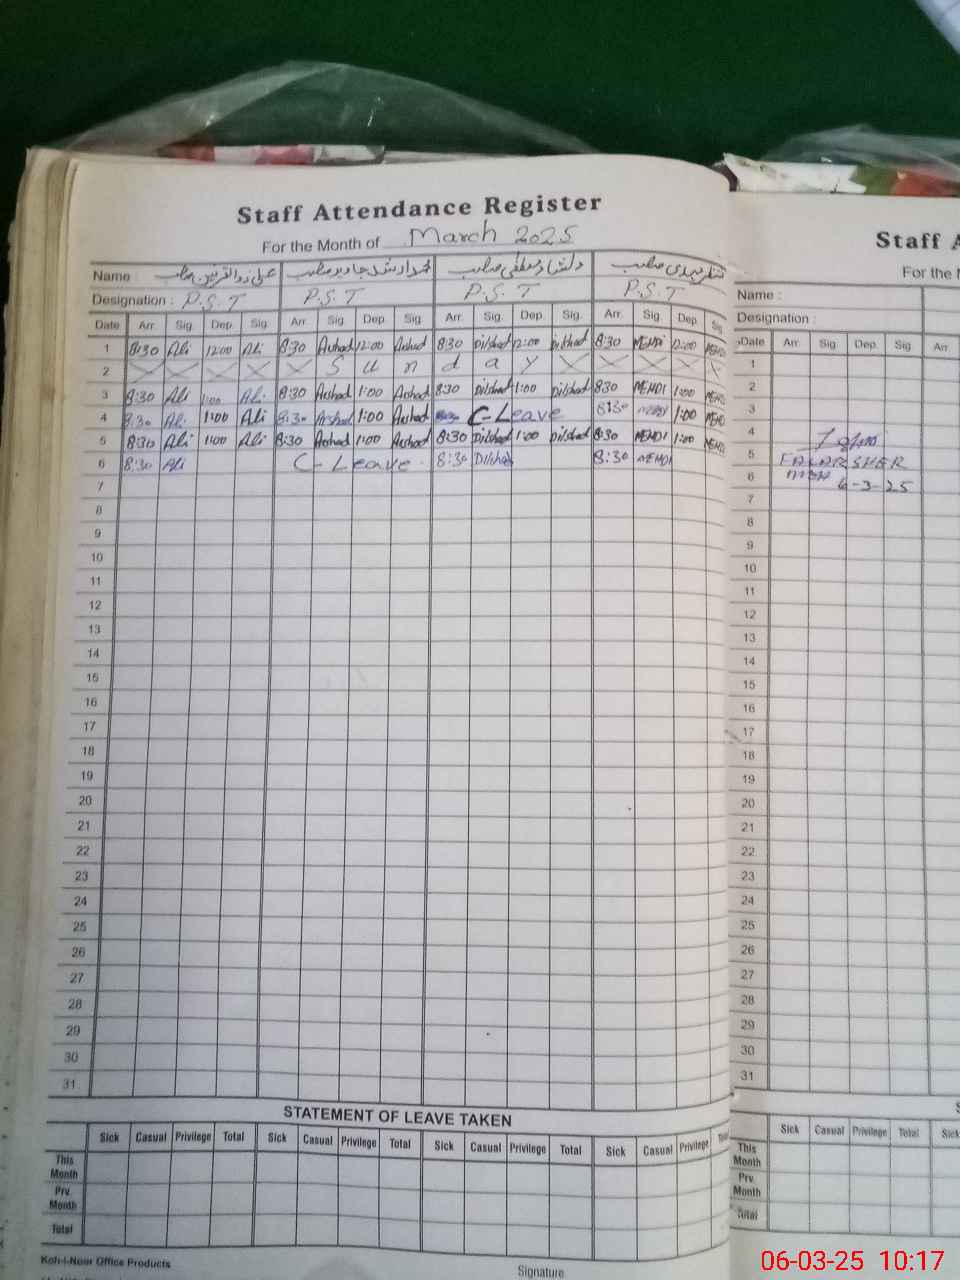 Staff Attendance Register
For the Month of March 2025
Name : علی ذوالقرنین صاحب محمد ارشد جاوید صاحب دلشاد مصطفی صاحب مہدی صاحب
Designation : P.S.T P.S.T P.S.T P.S.T
Date Arr. Sig. Dep. Sig. Arr. Sig. Dep. Sig. Arr. Sig. Dep. Sig. Arr. Sig. Dep. Sig.
1 8:30 Ali 12:00 Ali 8:30 Arshad 12:00 Arshad 8:30 Dilshad 12:00 Dilshad 8:30 MEHDI 12:00 MEHDI
2 S u n d a y
3 8:30 Ali 1:00 Ali 8:30 Arshad 1:00 Arshad 8:30 Dilshad 1:00 Dilshad 8:30 MEHDI 1:00 MEHDI
4 8:30 Ali 1:00 Ali 8:30 Arshad 1:00 Arshad C-Leave 8:30 MEHDI 1:00 MEHDI
5 8:30 Ali 1:00 Ali 8:30 Arshad 1:00 Arshad 8:30 Dilshad 1:00 Dilshad 8:30 MEHDI 1:00 MEHDI
6 8:30 Ali C-Leave 8:30 Dilshad 8:30 MEHDI
7
8
9
10
11
12
13
14
15
16
17
18
19
20
21
22
23
24
25
26
27
28
29
30
31
STATEMENT OF LEAVE TAKEN
Sick Casual Privilege Total Sick Casual Privilege Total Sick Casual Privilege Total Sick Casual Privilege
This Month
Prv. Month
Total
Koh-I-Noor Office Products
Signature
Staff
For the
Name :
Designation :
Date Arr. Sig. Dep. Sig. Arr.
1
2
3
4
5
6 6-3-25
7
8
9
10
11
12
13
14
15
16
17
18
19
20
21
22
23
24
25
26
27
28
29
30
31
Sick Casual Privilege Total Sick
This Month
Prv. Month
Total
06-03-25 10:17